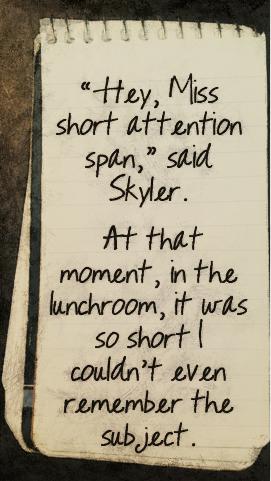 “Hey, Miss
short attention
span,” said
Skyler.
At that
moment, in the
lunchroom, it was
so short I
couldn’t even
remember the
subject.